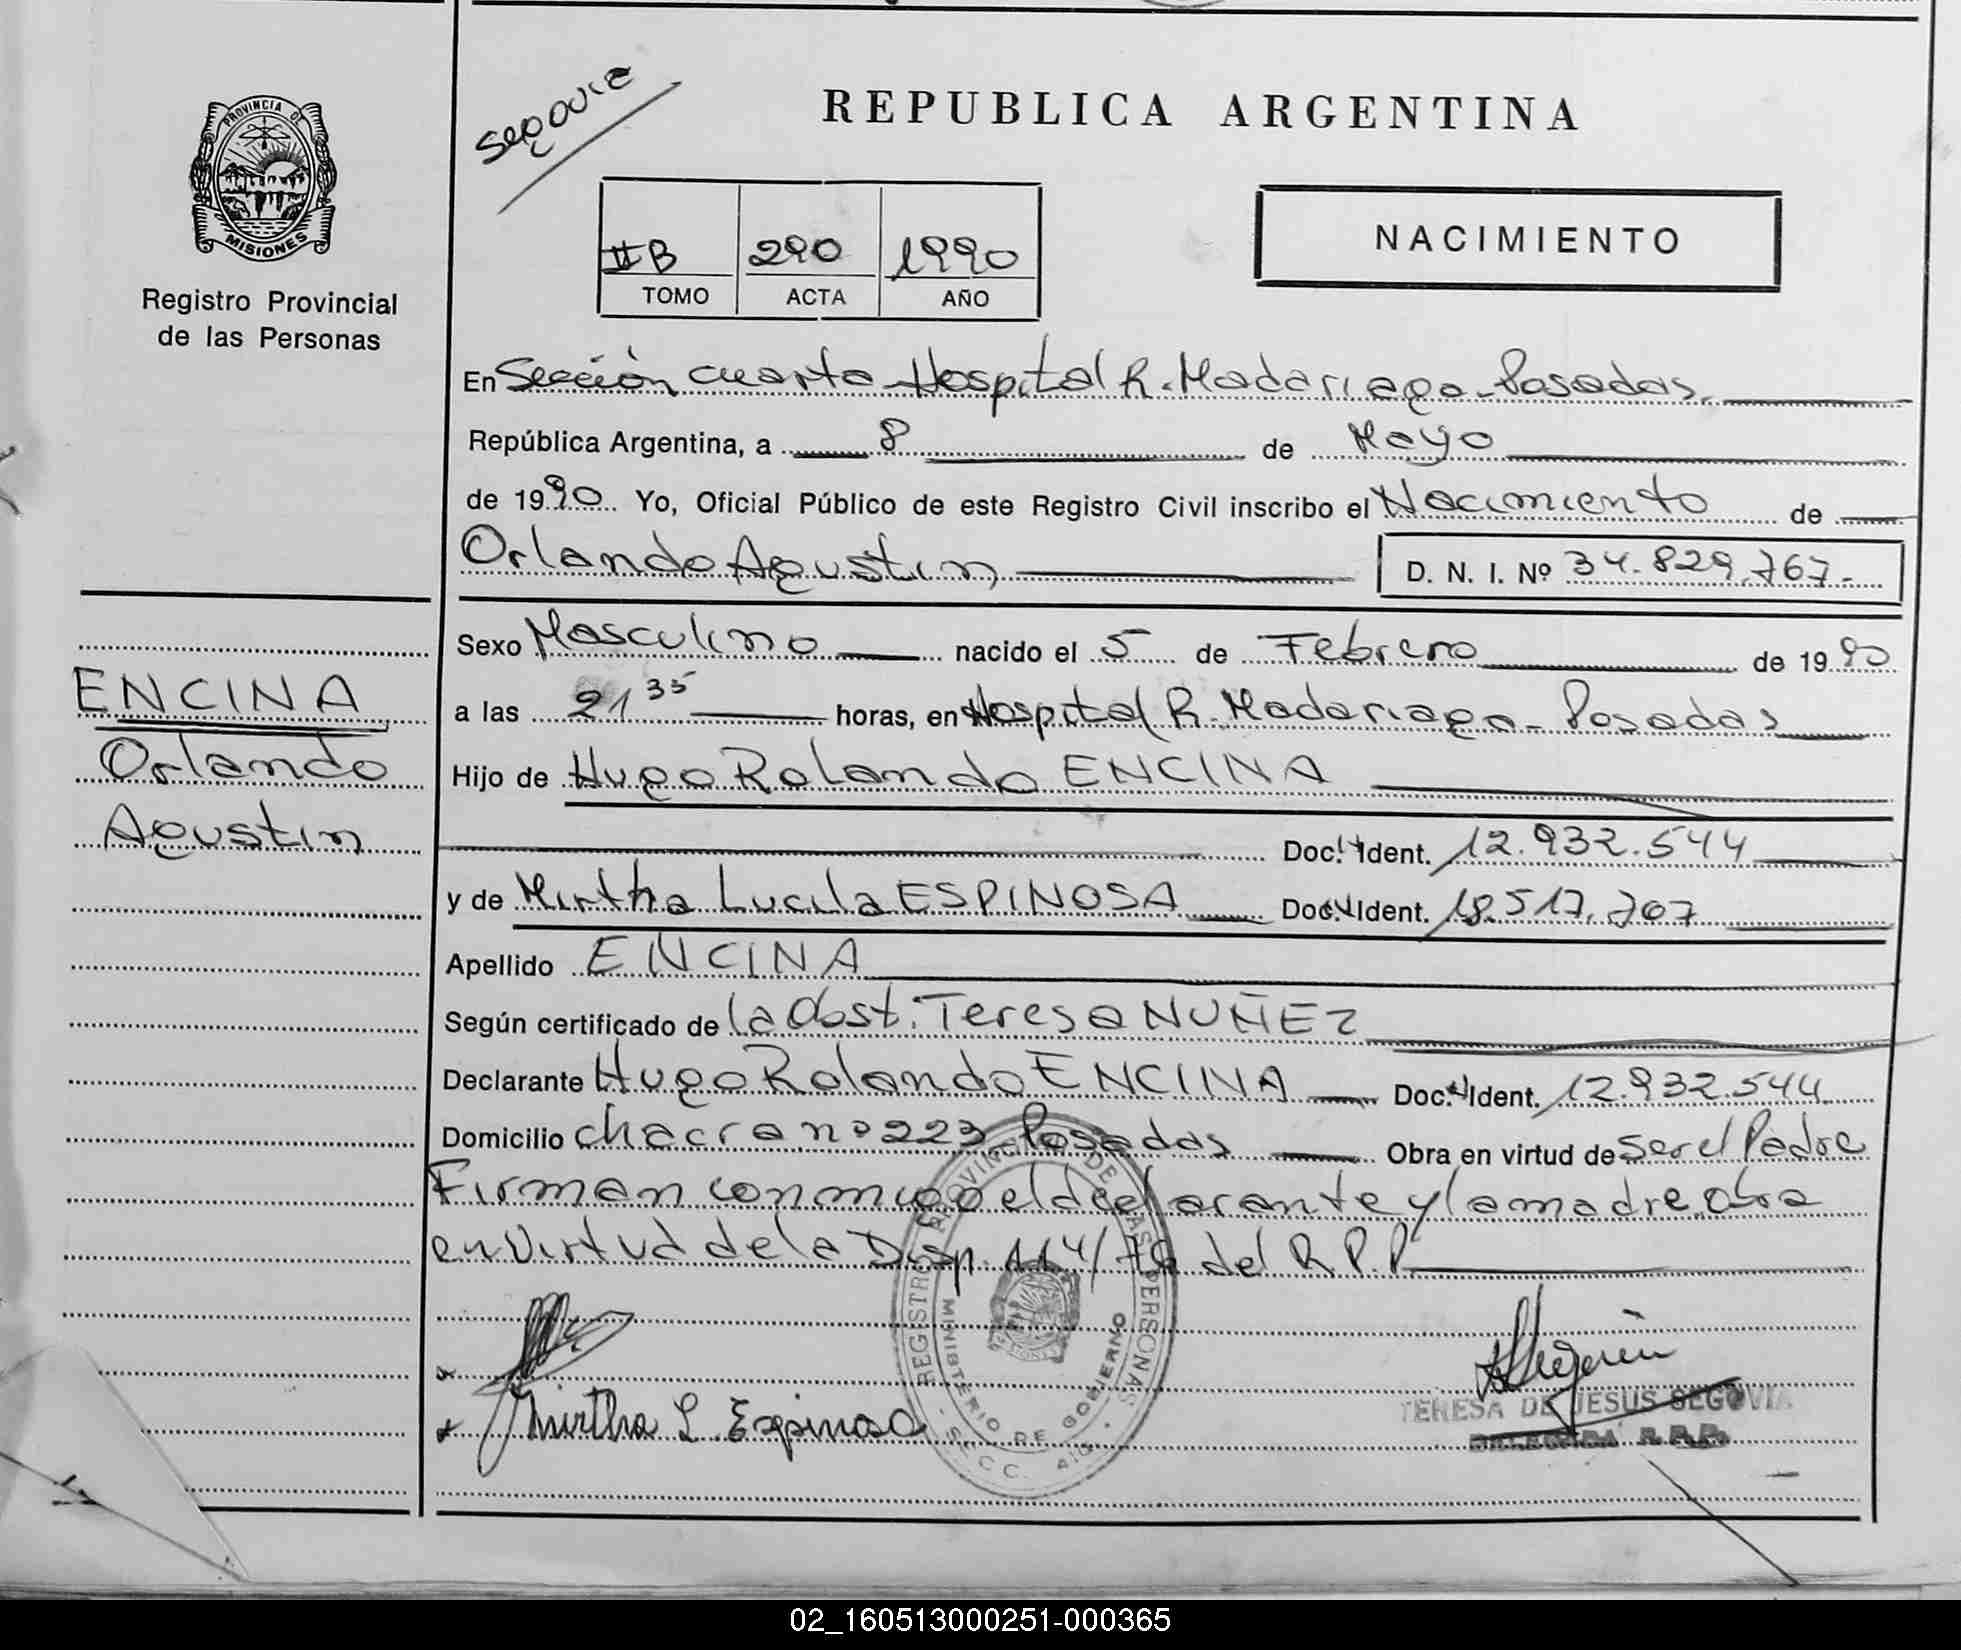 PROVINCIA DE
MISIONES
Registro Provincial
de las Personas
REPUBLICA ARGENTINA
IIB 290 1990
TOMO ACTA AÑO
NACIMIENTO
En Sección cuarta Hospital R. Madariaga - Posadas.
República Argentina, a 8 de Mayo
de 1990. Yo, Oficial Público de este Registro Civil inscribo el Nacimiento de
Orlando Agustin D. N. I. Nº 34.829.767.-
Sexo Masculino nacido el 5 de Febrero de 1990
a las 21 35 horas, en Hospital R. Madariaga - Posadas
Hijo de Hugo Rolando ENCINA
Doc. Ident. 12.932.544
y de Mirtha Lucila ESPINOSA Doc. Ident. 18.517.707
Apellido ENCINA
Según certificado de la Obst: Teresa NUÑEZ
Declarante Hugo Rolando ENCINA Doc. Ident. 12.932.544
Domicilio chacra nº 223 Posadas Obra en virtud de ser el Padre
Firman conmigo el declarante y la madre. Obra
en virtud de la Disp. 114/79 del R.P.P.
ENCINA
Orlando
Agustin
REGISTRO PROVINCIAL DE LAS PERSONAS
MINISTERIO DE GOBIERNO
Mirtha L. Espinosa
TERESA DE JESUS SEGOVIA
DELEGADA R.P.P.
02_160513000251-000365